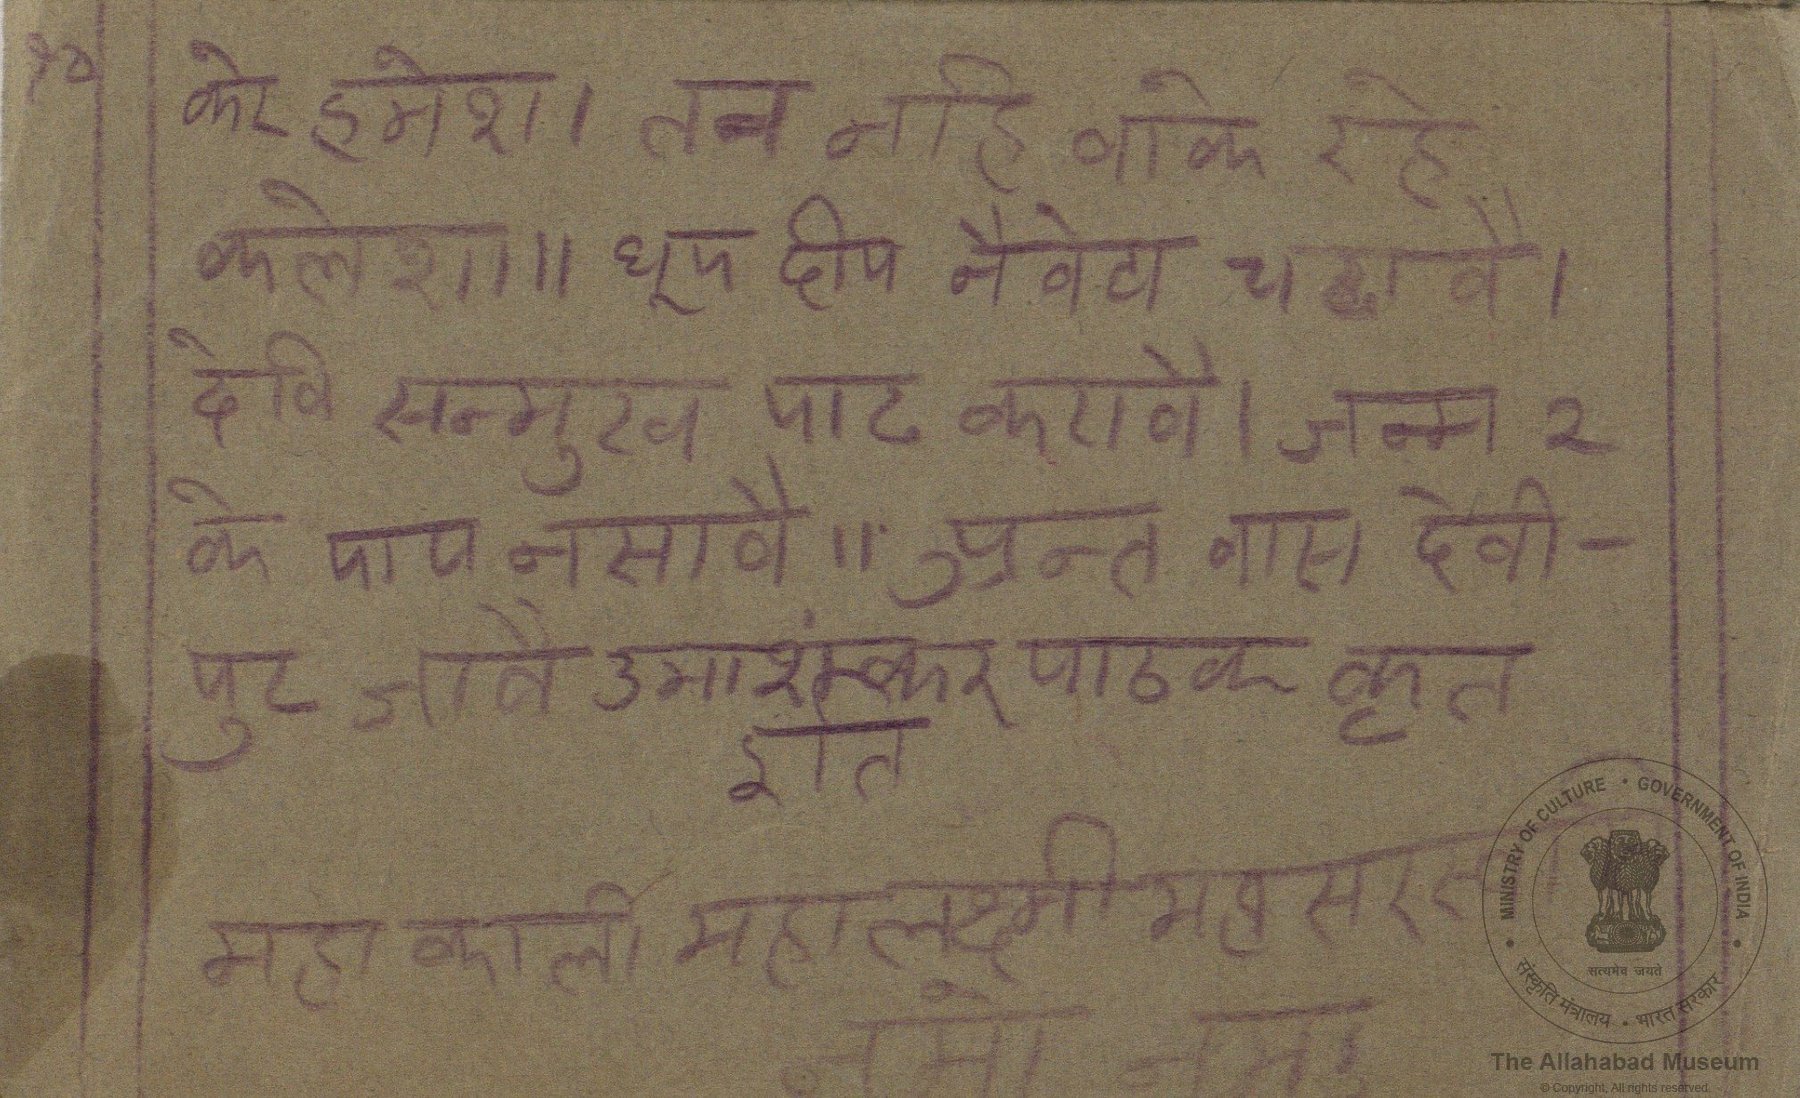 करे हमेश। तन नहि वाके रहे
कलेशा॥ धूप दीप नैवेद्य चढावै।
देवि सन्मुख पाठ करावै। जन्म २
के पाप नसावै॥ अन्त वास देवी-
पुर जावै उमाशंकर पाठक कृत
इति
महाकाली महालक्ष्मी महा
नमो नमः
MINISTRY OF CULTURE • GOVERNMENT OF INDIA
सत्यमेव जयते
संस्कृति मंत्रालय • भारत सरकार
The Allahabad Museum
© Copyright, All rights reserved.